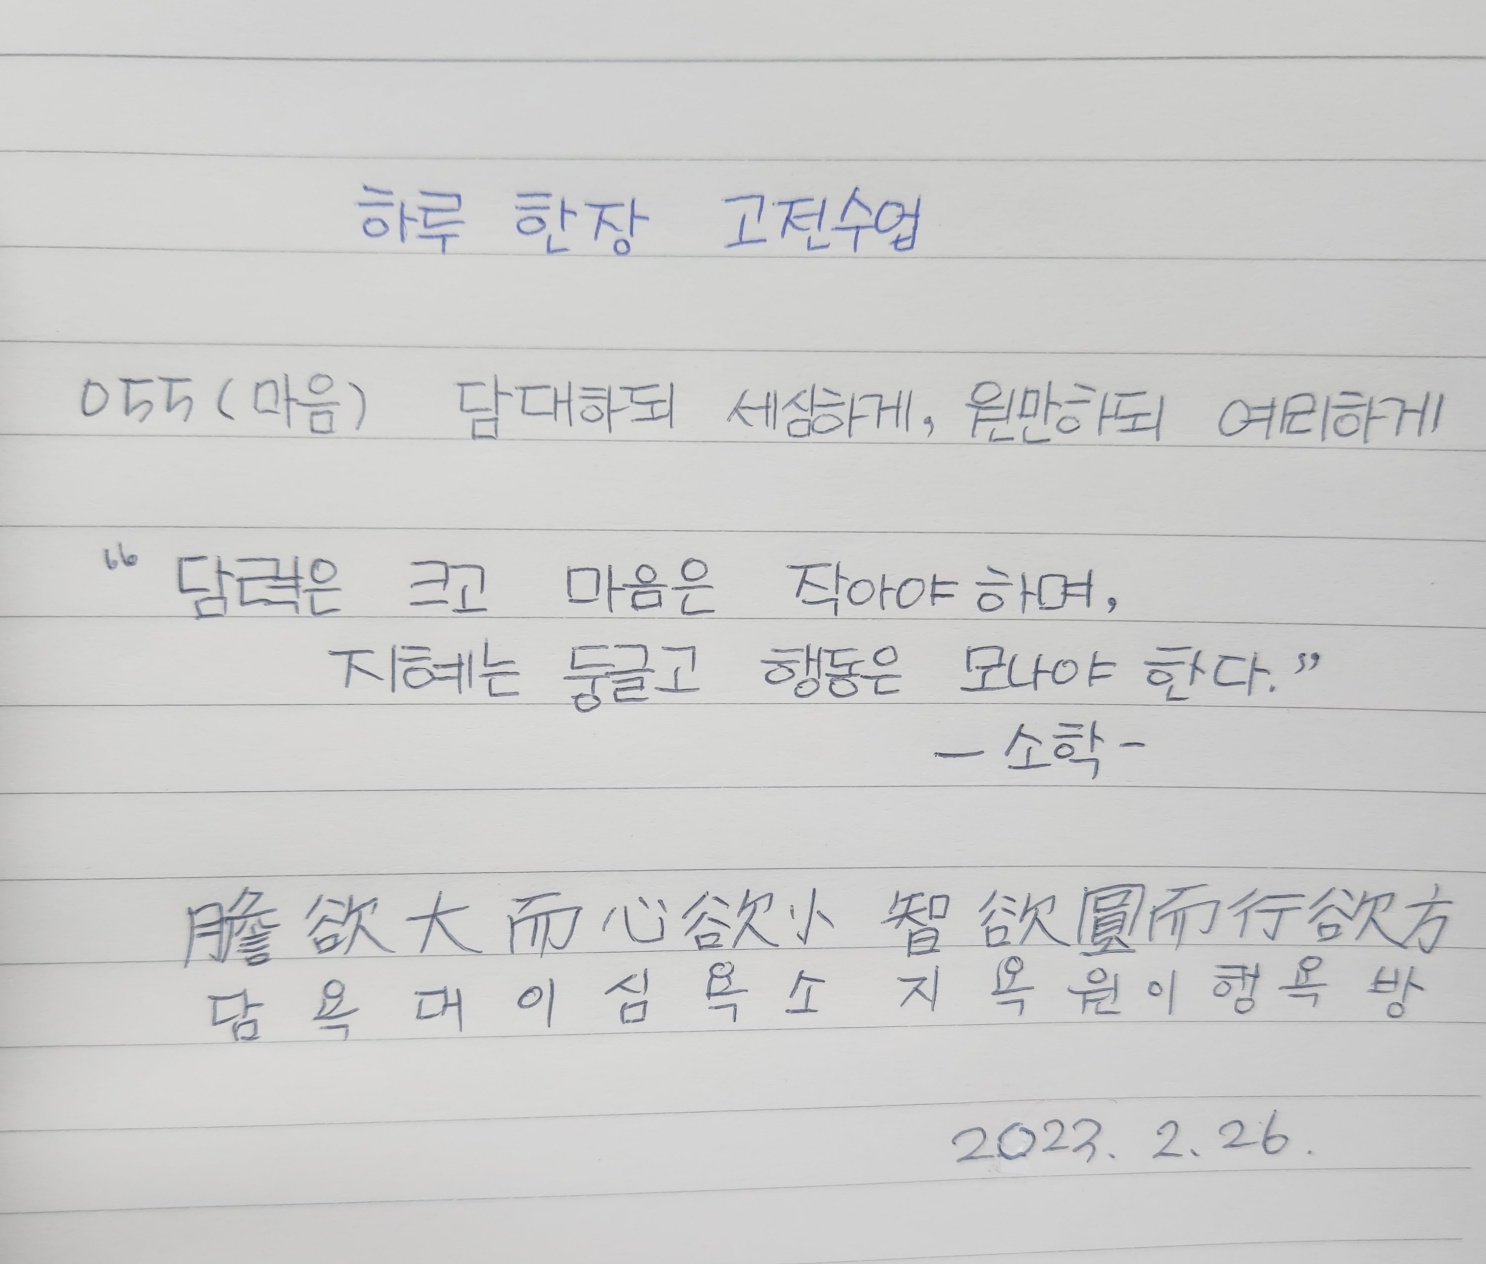 하루 한장 고전수업
055(마음) 담대하되 세심하게, 원만하되 예리하게
“담력은 크고 마음은 작아야하며,
지혜는 둥글고 행동은 모나야 한다.”
- 소학 -
膽欲大而心欲小 智欲圓而行欲方
담 욕 대 이 심 욕 소 지 욕 원 이 행 욕 방
2023. 2. 26.